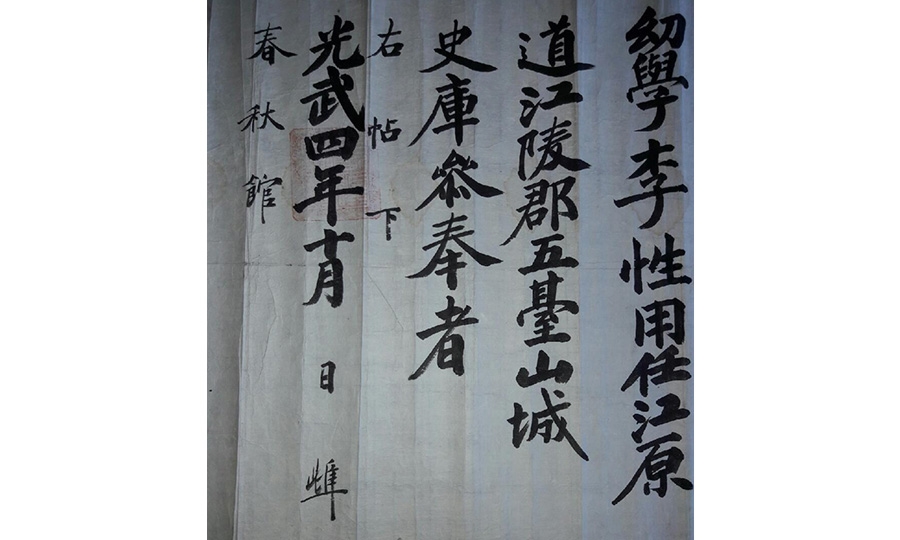 幼學李性用任江原
道江陵郡五臺山城
史庫叅奉者
右帖下
光武四年十月 日
春秋館